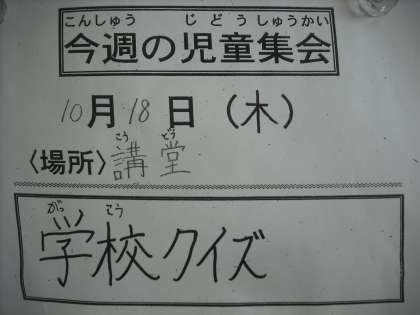 こんしゅう じどうしゅうかい
今週の児童集会
10月18日(木)
こう どう
〈場所〉講堂
がっ こう
学校クイズ